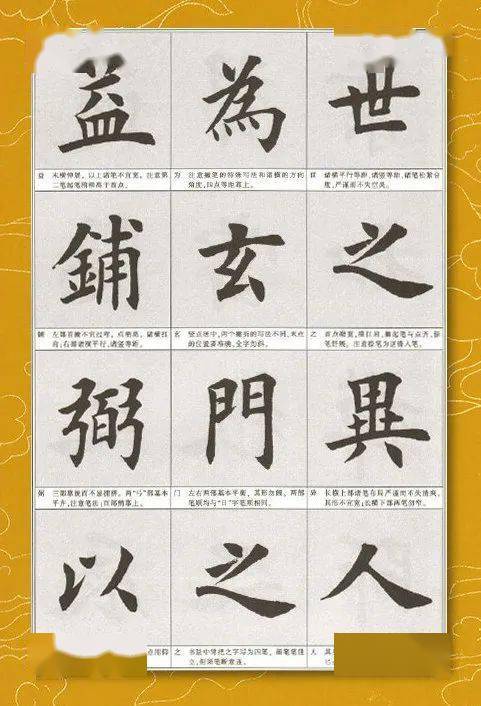 世
世 诸横平行等距，诸竖等距，诸笔松紧合
度，严谨而不失空灵。
之
之 首点略宽，
笔舒展。注意捺笔为逆锋入笔。
異
异 长横上部诸笔布局严谨而不失清爽，
其形不宜宽；长横下部两笔勿窄。
人
人 其
為
为 注意撇笔的特殊写法和诸横的方向
角度，四点等距靠上。
玄
玄 竖点居中，两个撇折的写法不同，末点
的位置要准确，全字为斜。
門
门 左右两部基本平衡，其形勿阔，两部
笔顺均与“日”字笔顺相同。
之
之 书法中常把之字写为四笔，
立，但须笔断意连。
益
益 末横伸展，以上诸笔不宜宽，注意第
二笔起笔稍稍高于首点。
鋪
铺 左部首撇不宜过弯，点稍高，诸横扛
肩；右部诸横平行，诸竖等距。
弼
弼 三部靠拢而不显拥挤，两“弓”部基本
平齐，注意笔法；百部稍靠上。
以